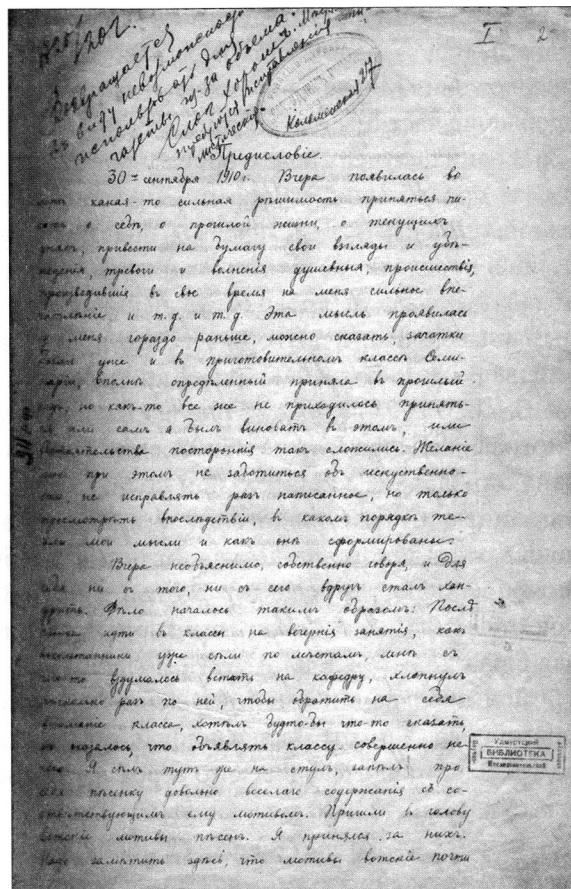 I 2
Возвращается
въ виду невозможности
использов. его для
газеты из-за объема.
Слог хорошъ.
Предисловіе.
30 = сентября 1910 г. Вчера появилась во
какая-то сильная рѣшимость приняться пи-
о себѣ, о прошлой жизни, о текущихъ
привести на бумагу свои взгляды и убѣ-
жденія, тревоги и волненія душевныя, происшествія,
произведшія въ свое время на меня сильное впе-
чатлѣніе и т.д. и т.д. Эта мысль проявилась
у меня гораздо раньше, можно сказать, зачатки
были уже и въ приготовительномъ классѣ Семи-
наріи, вполнѣ опредѣленный приняла въ прошлый
годъ, но какъ-то все же не приходилось принять-
ся или самъ я былъ виноватъ въ этомъ, или
обстоятельства постороннія такъ сложились. Желаніе
при этомъ не заботиться объ искуственно-
сти, не исправлять разъ написанное, но только
просмотрѣть впослѣдствіи, въ какомъ порядкѣ те-
кли мои мысли и какъ онѣ сформированы.
Вчера необъяснимо, собственно говоря, и для
себя ни съ того, ни съ сего вдругъ сталъ хан-
дрить. Дѣло началось такимъ образомъ: Послѣ
идти въ классъ на вечернія занятія, какъ
воспитанники уже сѣли по мѣстамъ, мнѣ съ
чего-то вздумалось встать на кафедру, хлопнулъ
нѣсколько разъ по ней, чтобы обратить на себя
вниманіе класса, хотѣлъ будто-бы что-то сказать,
но оказалось, что объявлять классу совершенно не-
чего. Я сѣлъ тутъ же на стулъ, запѣлъ про
себя пѣсенку довольно веселаго содержанія съ со-
отвѣтствующимъ ему мотивомъ. Пришли въ голову
вотскіе мотивы пѣсенъ. Я принялся за нихъ.
Надо замѣтить здѣсь, что мотивы вотскіе почти
Удмуртский
БИБЛИОТЕКА